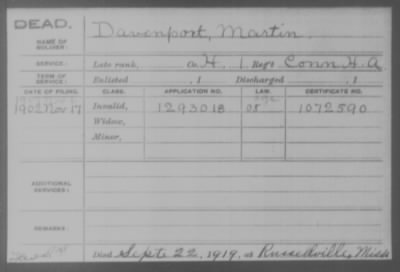 DEAD.
Davenport, Martin.
NAME OF SOLDIER:
SERVICE: Late rank, Co. H, 1 Reg't Conn H. A.
TERM OF SERVICE: Enlisted , 1 Discharged , 1
DATE OF FILING. CLASS. APPLICATION NO. LAW. CERTIFICATE NO.
1902 Nov 17 Invalid, 1293018 1072590
Widow,
Minor,
ADDITIONAL SERVICES:
REMARKS:
Died Sept 22, 1919, at Russellville,